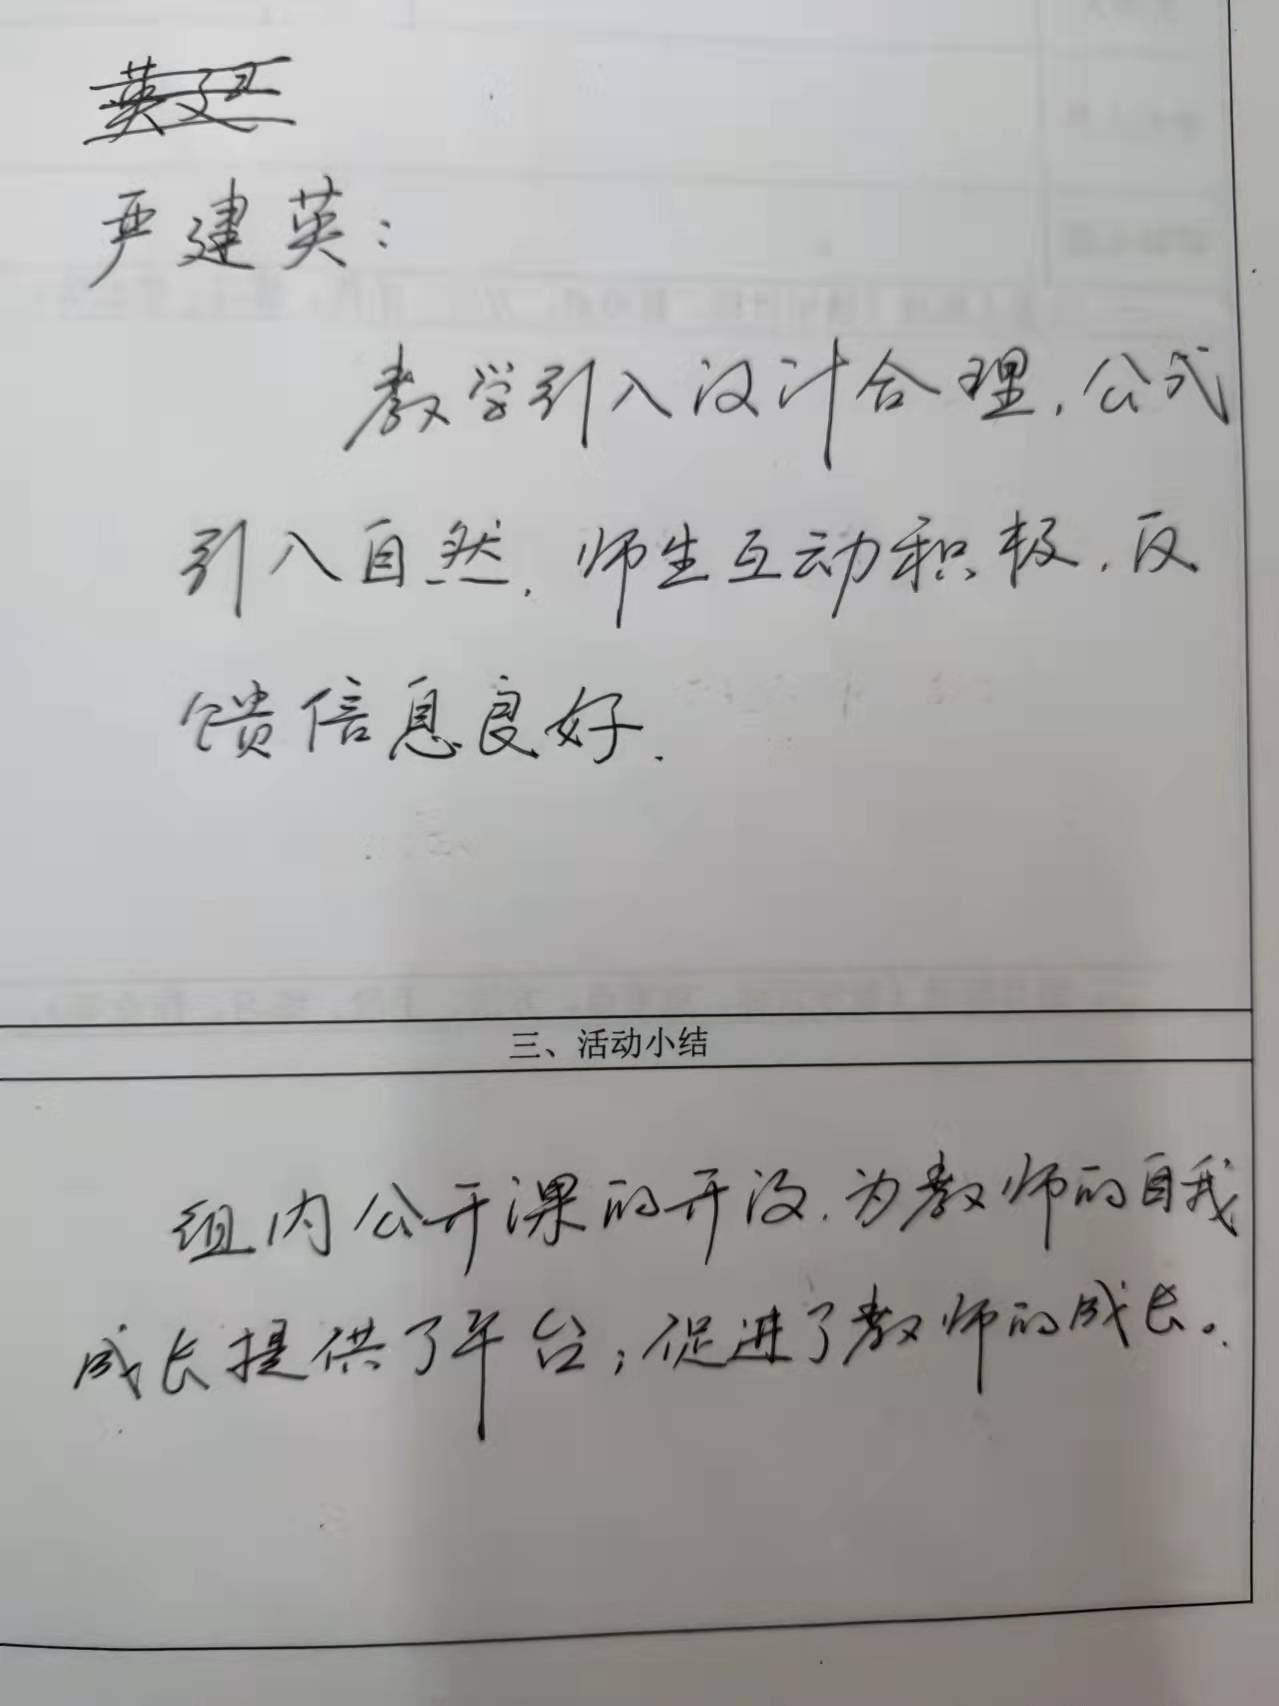 严建英：
教学引入设计合理，公式
引入自然，师生互动积极，反
馈信息良好.
三、活动小结
组内公开课的开设，为教师的自我
成长提供了平台；促进了教师的成长。